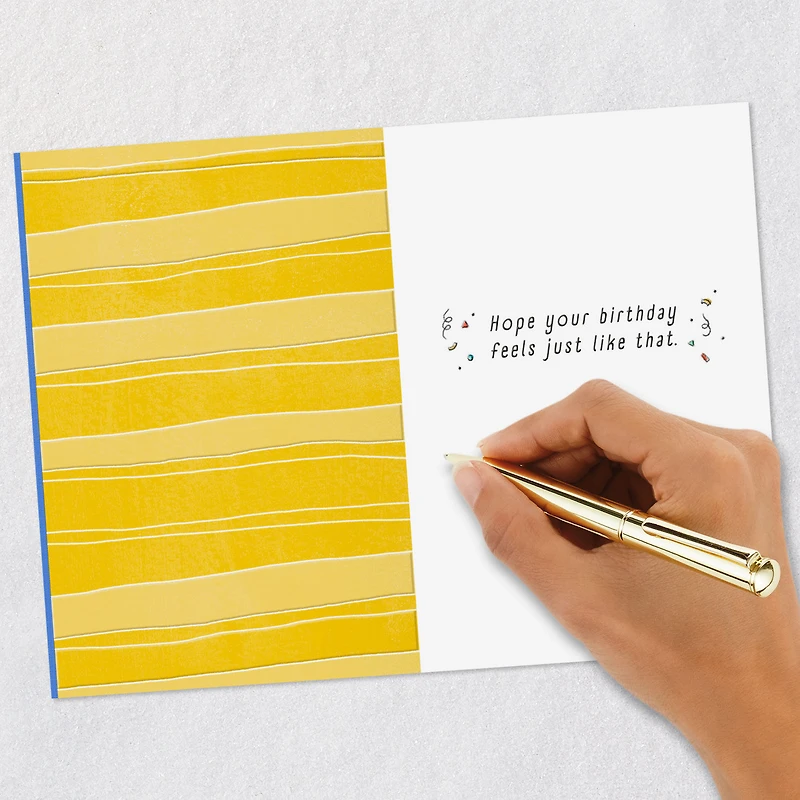 Hope your birthday
feels just like that.